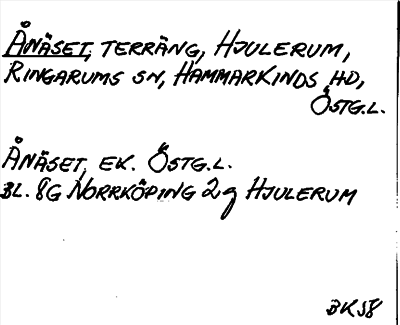 Ånäset, terräng, Hjulerum,
Ringarums sn, Hammarkinds hd,
Östg.l.
Ånäset, ek. Östg.l.
Bl. 8G Norrköping 2g Hjulerum
BK58